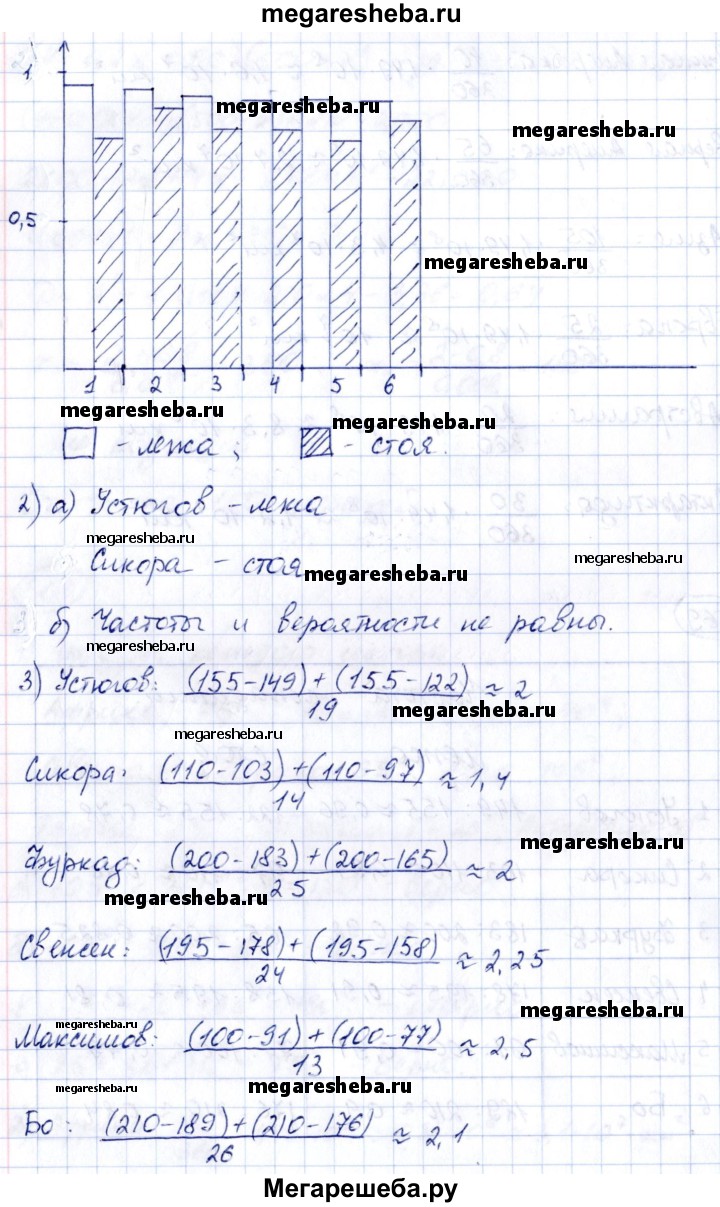 megaresheba.ru
1
megaresheba.ru
megaresheba.ru
0,5
megaresheba.ru
1 2 3 4 5 6
megaresheba.ru
megaresheba.ru
- лежа; - стоя.
2) а) Устюгов - лежа
megaresheba.ru
megaresheba.ru
Сикора - стоя
megaresheba.ru
б) Частоты и вероятности не равны.
megaresheba.ru
3) Устюгов: (155-149)+(155-122)/19 ≈ 2
megaresheba.ru
megaresheba.ru
Сикора: (110-103)+(110-97)/14 ≈ 1,4
megaresheba.ru
Фуркад: (200-183)+(200-165)/25 ≈ 2
megaresheba.ru
Свенсен: (195-178)+(195-158)/24 ≈ 2,25
megaresheba.ru
megaresheba.ru
Максимов: (100-91)+(100-77)/13 ≈ 2,5
megaresheba.ru
megaresheba.ru
Бо: (210-189)+(210-176)/26 ≈ 2,1
Мегарешеба.ру